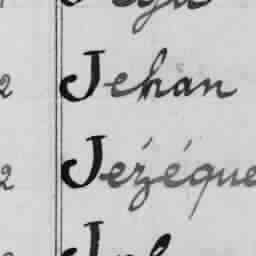 2 Jehan
2 Jézéque